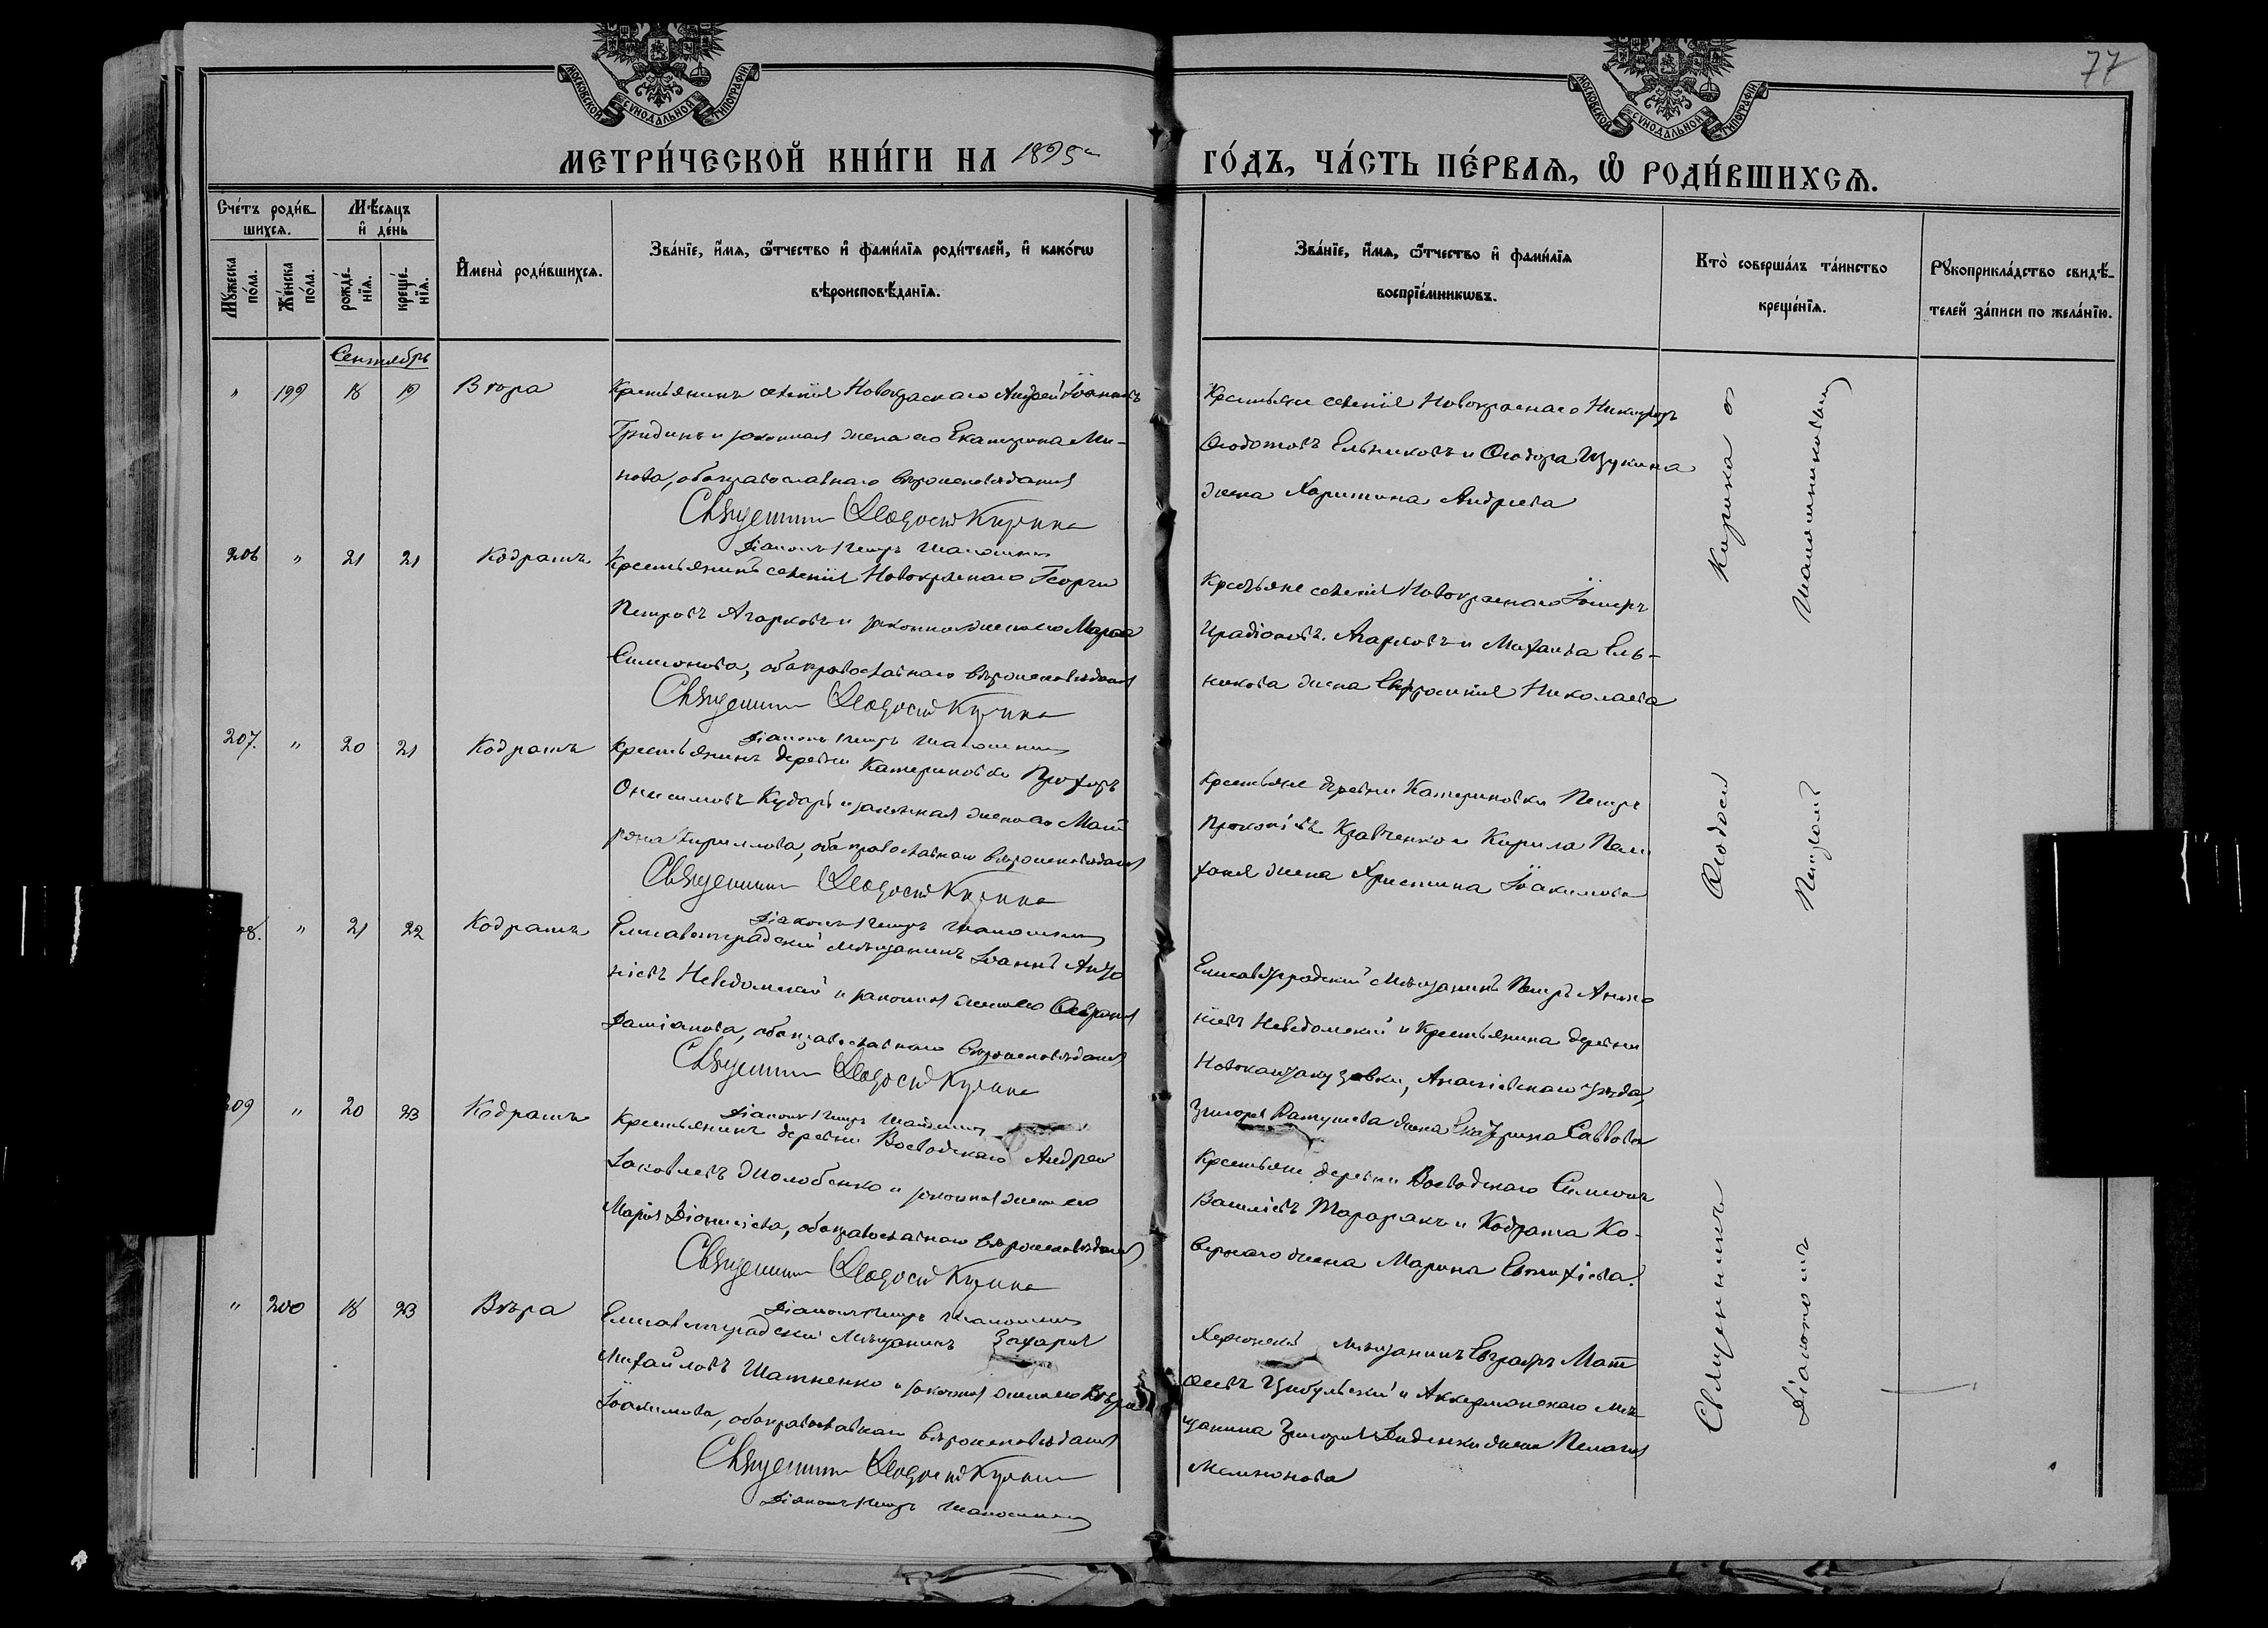 77
МОСКОВСКОЙ СѴНОДАЛЬНОЙ ТИПОГРАФІИ
МОСКОВСКОЙ СѴНОДАЛЬНОЙ ТИПОГРАФІИ
МЕТРИ́ЧЕСКОЙ КНИ́ГИ НА 1895 ГО́ДЪ, ЧА́СТЬ ПЕ́РВАѦ, Ѡ҆ РОДИ́ВШИХСѦ.
Сче́тъ роди́в-
шихсѧ.
Мꙋжеска по́ла.
Же́нска по́ла.
Мѣ́сѧцъ
и҆ де́нь
рожде́-
нїѧ.
креще́-
нїѧ.
И҆мена̀ роди́вшихсѧ.
Зва́нїе, и҆́мѧ, ѻ҆́тчество и҆ фами́лїѧ роди́телей, и҆ како́гѡ
вѣроисповѣ́данїѧ.
Зва́нїе, и҆́мѧ, ѻ҆́тчество и҆ фами́лїѧ
воспрїе́мникѡвъ.
Кто̀ соверша́лъ та́инство
креще́нїѧ.
Рꙋкоприкла́дство свидѣ́-
телей за́писи по жела́нїю.
Сентябрь
" 199 18 19 Вѣра
Крестьянинъ селенія Новокраснаго Андрей Іоанновъ
Гридинъ и законная жена его Екатерина Ми-
нова, оба православнаго вѣроисповѣданія
Священникъ Ѳеодосій Кирика
Діаконъ Петръ Шапошник
Крестьяне селенія Новокраснаго Никифоръ
Ѳеодотовъ Ельниковъ и Ѳеодора Щукина
жена Харитина Андреева
206 " 21 21 Кодратъ
Крестьянинъ селенія Новокраснаго Георгій
Петровъ Агарковъ и законная жена его Марѳа
Симеонова, оба православнаго вѣроисповѣданія
Священникъ Ѳеодосій Кирика
Діаконъ Петръ Шапошник
Крестьяне селенія Новокраснаго
Иродіоновъ Агарковъ и Михаила Ель-
никова жена Евфросинія Николаева
207. " 20 21 Кодратъ
Крестьянинъ деревни Катериновки Прохоръ
Онисимовъ Кударь и законная жена его Мат
рона Кириллова, оба православнаго вѣроисповѣданія
Священникъ Ѳеодосій Кирика
Діаконъ Петръ Шапошник
Крестьяне деревни Катериновки Петръ
Прокопіевъ Кравченко и Кирила
жена Христина Іоакимова
08. " 21 22 Кодратъ
Елисаветградскій мѣщанинъ Іоаннъ Анто
ніевъ Неведомскій и законная жена его
Даміанова, оба православнаго вѣроисповѣданія
Священникъ Ѳеодосій Кирика
Діаконъ Петръ Шапошник
Елисаветградскій мѣщанинъ Петръ Анто
ніевъ Неведомскій и крестьянина деревни
Ананьевскаго уѣзда,
Григорія жена Екатерина Саввова
209 " 20 23 Кодратъ
Крестьянинъ деревни Воеводскаго Андрей
Іаковлевъ Жолобенко и законная жена его
Марія Діонисіева, оба православнаго вѣроисповѣданія
Священникъ Ѳеодосій Кирика
Діаконъ Петръ Шапошник
Крестьяне деревни Воеводскаго Симеонъ
Василіевъ Тараракъ и Кодрата Ко-
вернаго жена Марина Евтихіева.
" 200 18 23 Вѣра
Елисаветградскій мѣщанинъ Захарія
Михайловъ Шатненко и законная жена его Вѣра
Іоакимова, оба православнаго вѣроисповѣданія
Священникъ Ѳеодосій Кирика
Діаконъ Петръ Шапошник
Херсонскій мѣщанинъ Евграфъ Мат
ѳеевъ Цыбульскій и Аккерманскаго мѣ-
щанина Григорія жена Пелагія
Мемнонова
Священникъ Ѳеодосій Кирика съ
Діакономъ Петромъ Шапошниковым